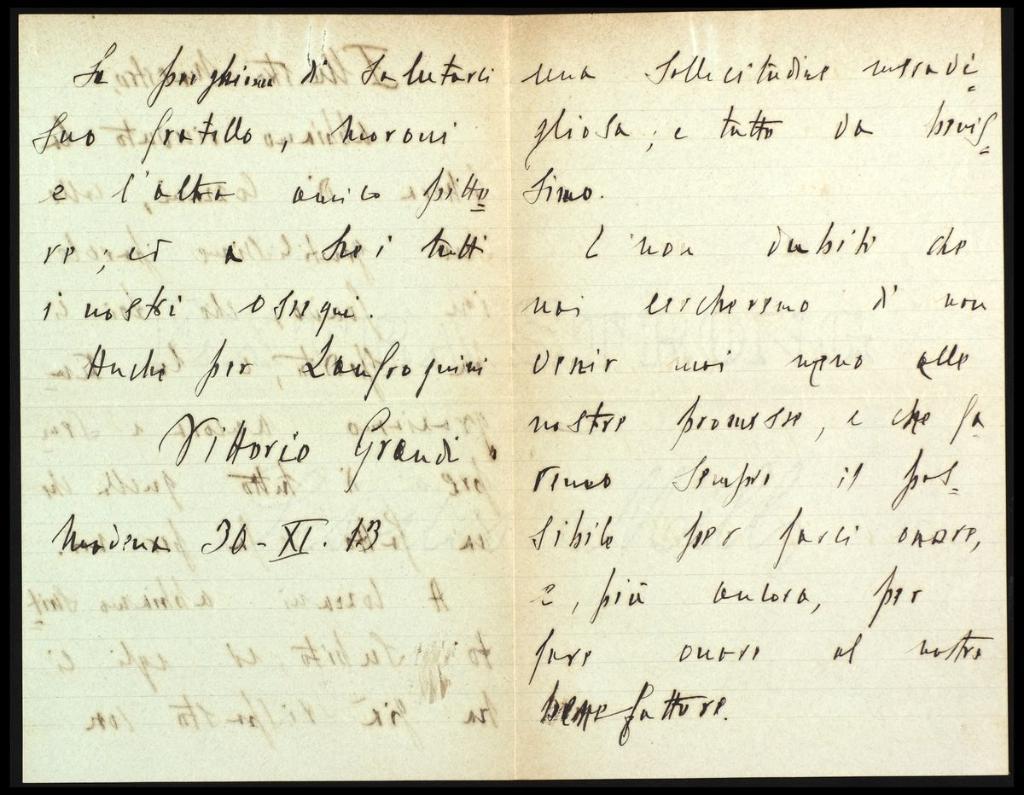 La preghiamo di salutarci
Suo fratello, Moroni
e l'altro amico pitto
re; ed a Lei tutti
i nostri ossequi.
Anche per Zanfrognini
Vittorio Grandi.
Modena 30-XI. 13
una sollecitudine meravi=
gliosa; e tutto va benis=
simo.
E non dubiti che
noi cercheremo di non
venir mai meno alle
nostre promesse, e che fa
remo sempre il pos=
sibile per farci onore,
e, più ancora, per
fare onore al nostro
benefattore.